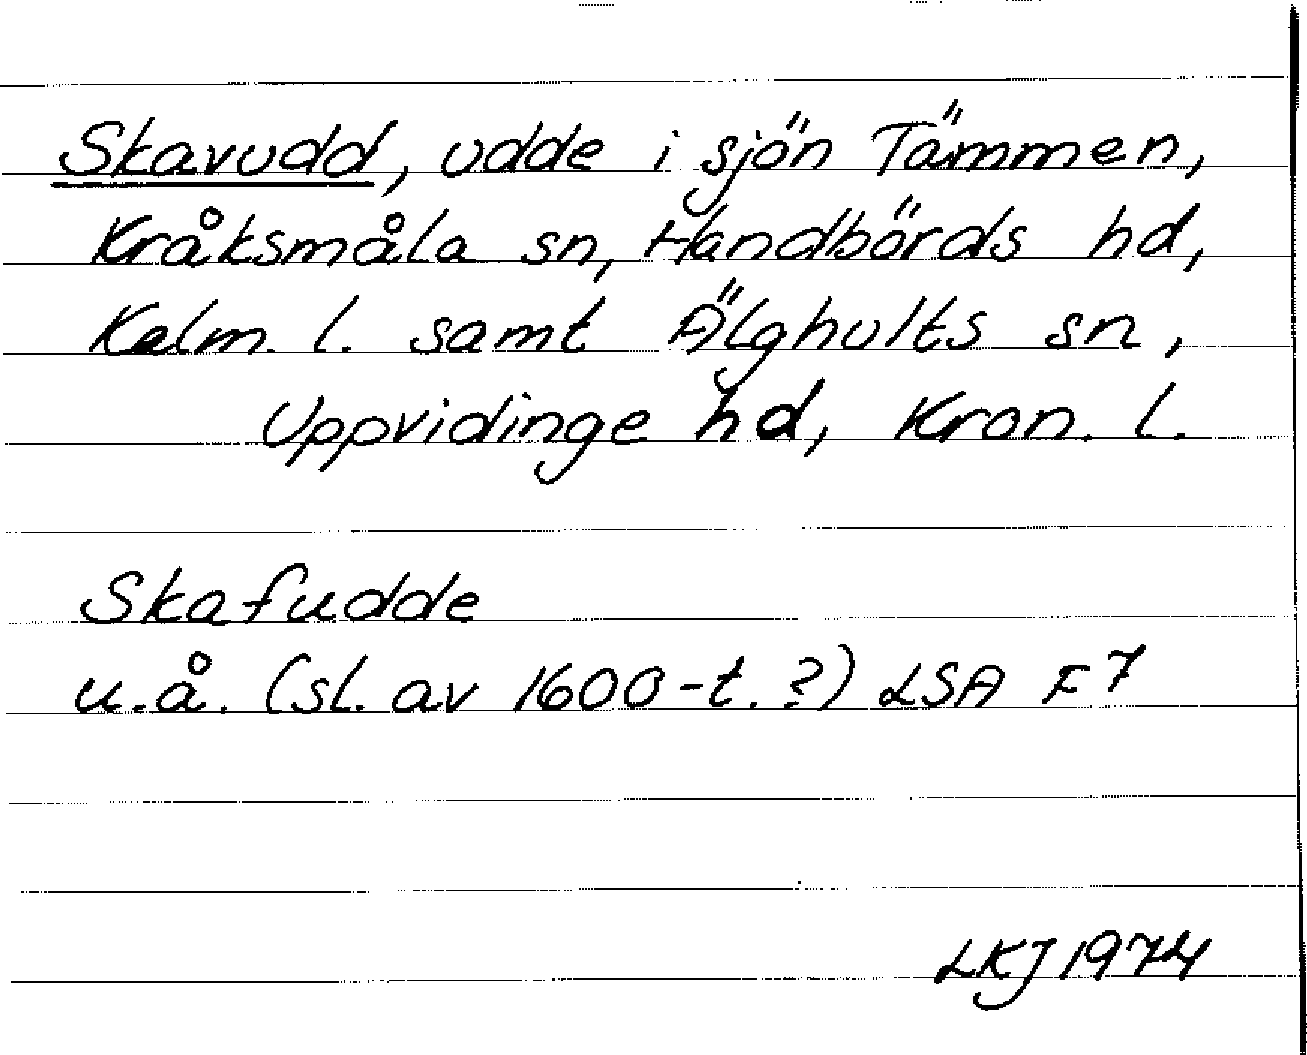 Skavudd, udde i sjön Tämmen,
Kråksmåla sn, Handbörds hd,
Kalm. l. samt Älghults sn,
Uppvidinge hd, Kron. l.
Skafudde
u.å. (sl. av 1600-t.?) LSA F7
LKJ 1974